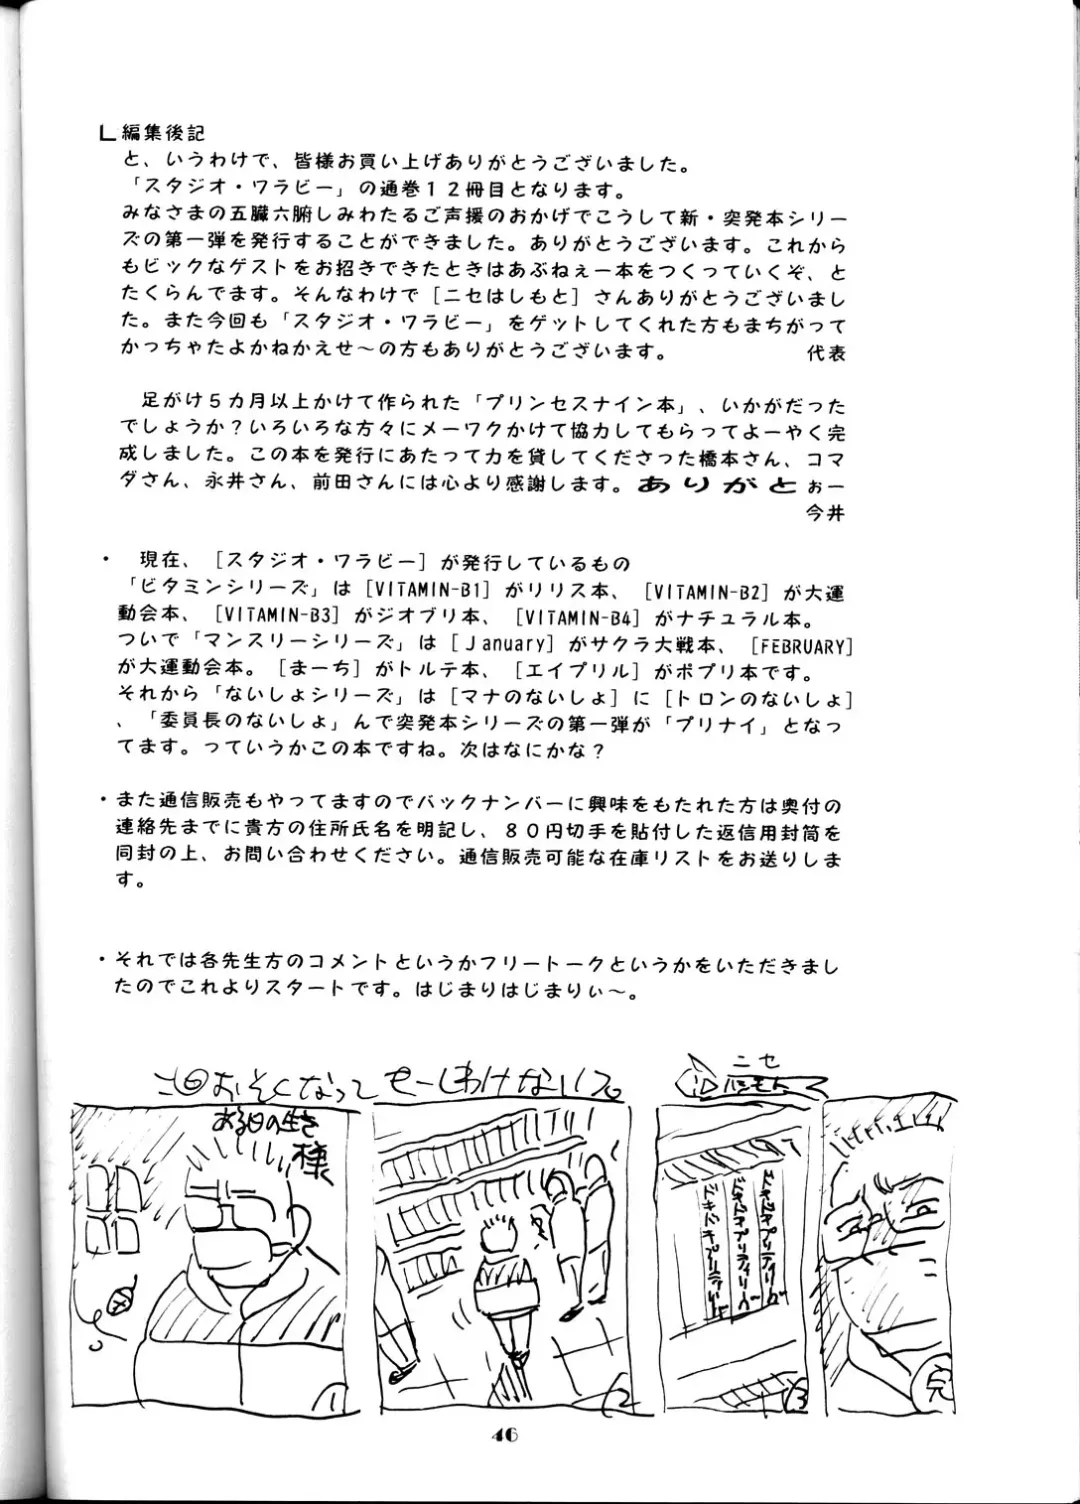 編集後記
と、いうわけで、皆様お買い上げありがとうございました。
「スタジオ・ワラビー」の通巻１２冊目となります。
みなさまの五臓六腑しみわたるご声援のおかげでこうして新・突発本シリー
ズの第一弾を発行することができました。ありがとうございます。これから
もビックなゲストをお招きできたときはあぶねぇー本をつくっていくぞ、と
たくらんでます。そんなわけで［ニセはしもと］さんありがとうございまし
た。また今回も「スタジオ・ワラビー」をゲットしてくれた方もまちがって
かっちゃたよかねかえせ～の方もありがとうございます。 代表
足がけ５カ月以上かけて作られた「プリンセスナイン本」、いかがだった
でしょうか？いろいろな方々にメーワクかけて協力してもらってよーやく完
成しました。この本を発行にあたって力を貸してくださった橋本さん、コマ
ダさん、永井さん、前田さんには心より感謝します。ありがとぉー
今井
・ 現在、［スタジオ・ワラビー］が発行しているもの
「ビタミンシリーズ」は［VITAMIN-B1］がリリス本、［VITAMIN-B2］が大運
動会本、［VITAMIN-B3］がジオブリ本、［VITAMIN-B4］がナチュラル本。
ついで「マンスリーシリーズ」は［January］がサクラ大戦本、［FEBRUARY］
が大運動会本。［まーち］がトルテ本、［エイプリル］がポプリ本です。
それから「ないしょシリーズ」は［マナのないしょ］に［トロンのないしょ］
、「委員長のないしょ」んで突発本シリーズの第一弾が「プリナイ」となっ
てます。っていうかこの本ですね。次はなにかな？
・また通信販売もやってますのでバックナンバーに興味をもたれた方は奥付の
連絡先までに貴方の住所氏名を明記し、８０円切手を貼付した返信用封筒を
同封の上、お問い合わせください。通信販売可能な在庫リストをお送りしま
す。
・それでは各先生方のコメントというかフリートークというかをいただきまし
たのでこれよりスタートです。はじまりはじまりぃ～。
おそくなって もーしわけないっス。
ニセ
ハシモト
ある日の生き
様
1
2
3
完
46